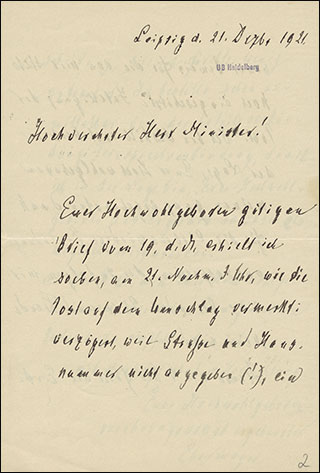 Leipzig d. 21. Dezbr 1921.
UB Heidelberg
Hochverehrter Herr Minister!
Euer Hochwohlgeboren gütigen
Brief vom 19. d. M. erhielt ich
soeben, am 21. Nachm. 3 Uhr, wie die
Post auf dem Umschlag vermerkt:
verzögert, weil Straße und Haus-
nummer nicht angegeben (!), ein
2